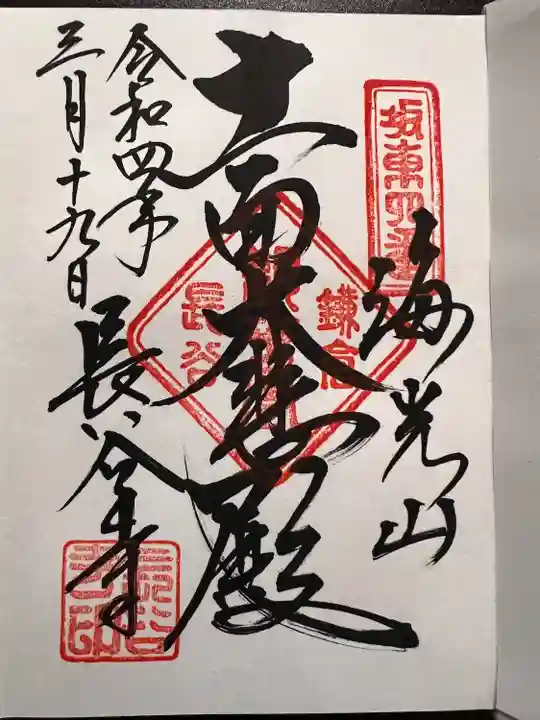 坂東四番
海光山
十一面大悲殿
鎌倉
長谷
令和四年
三月十九日
長谷寺